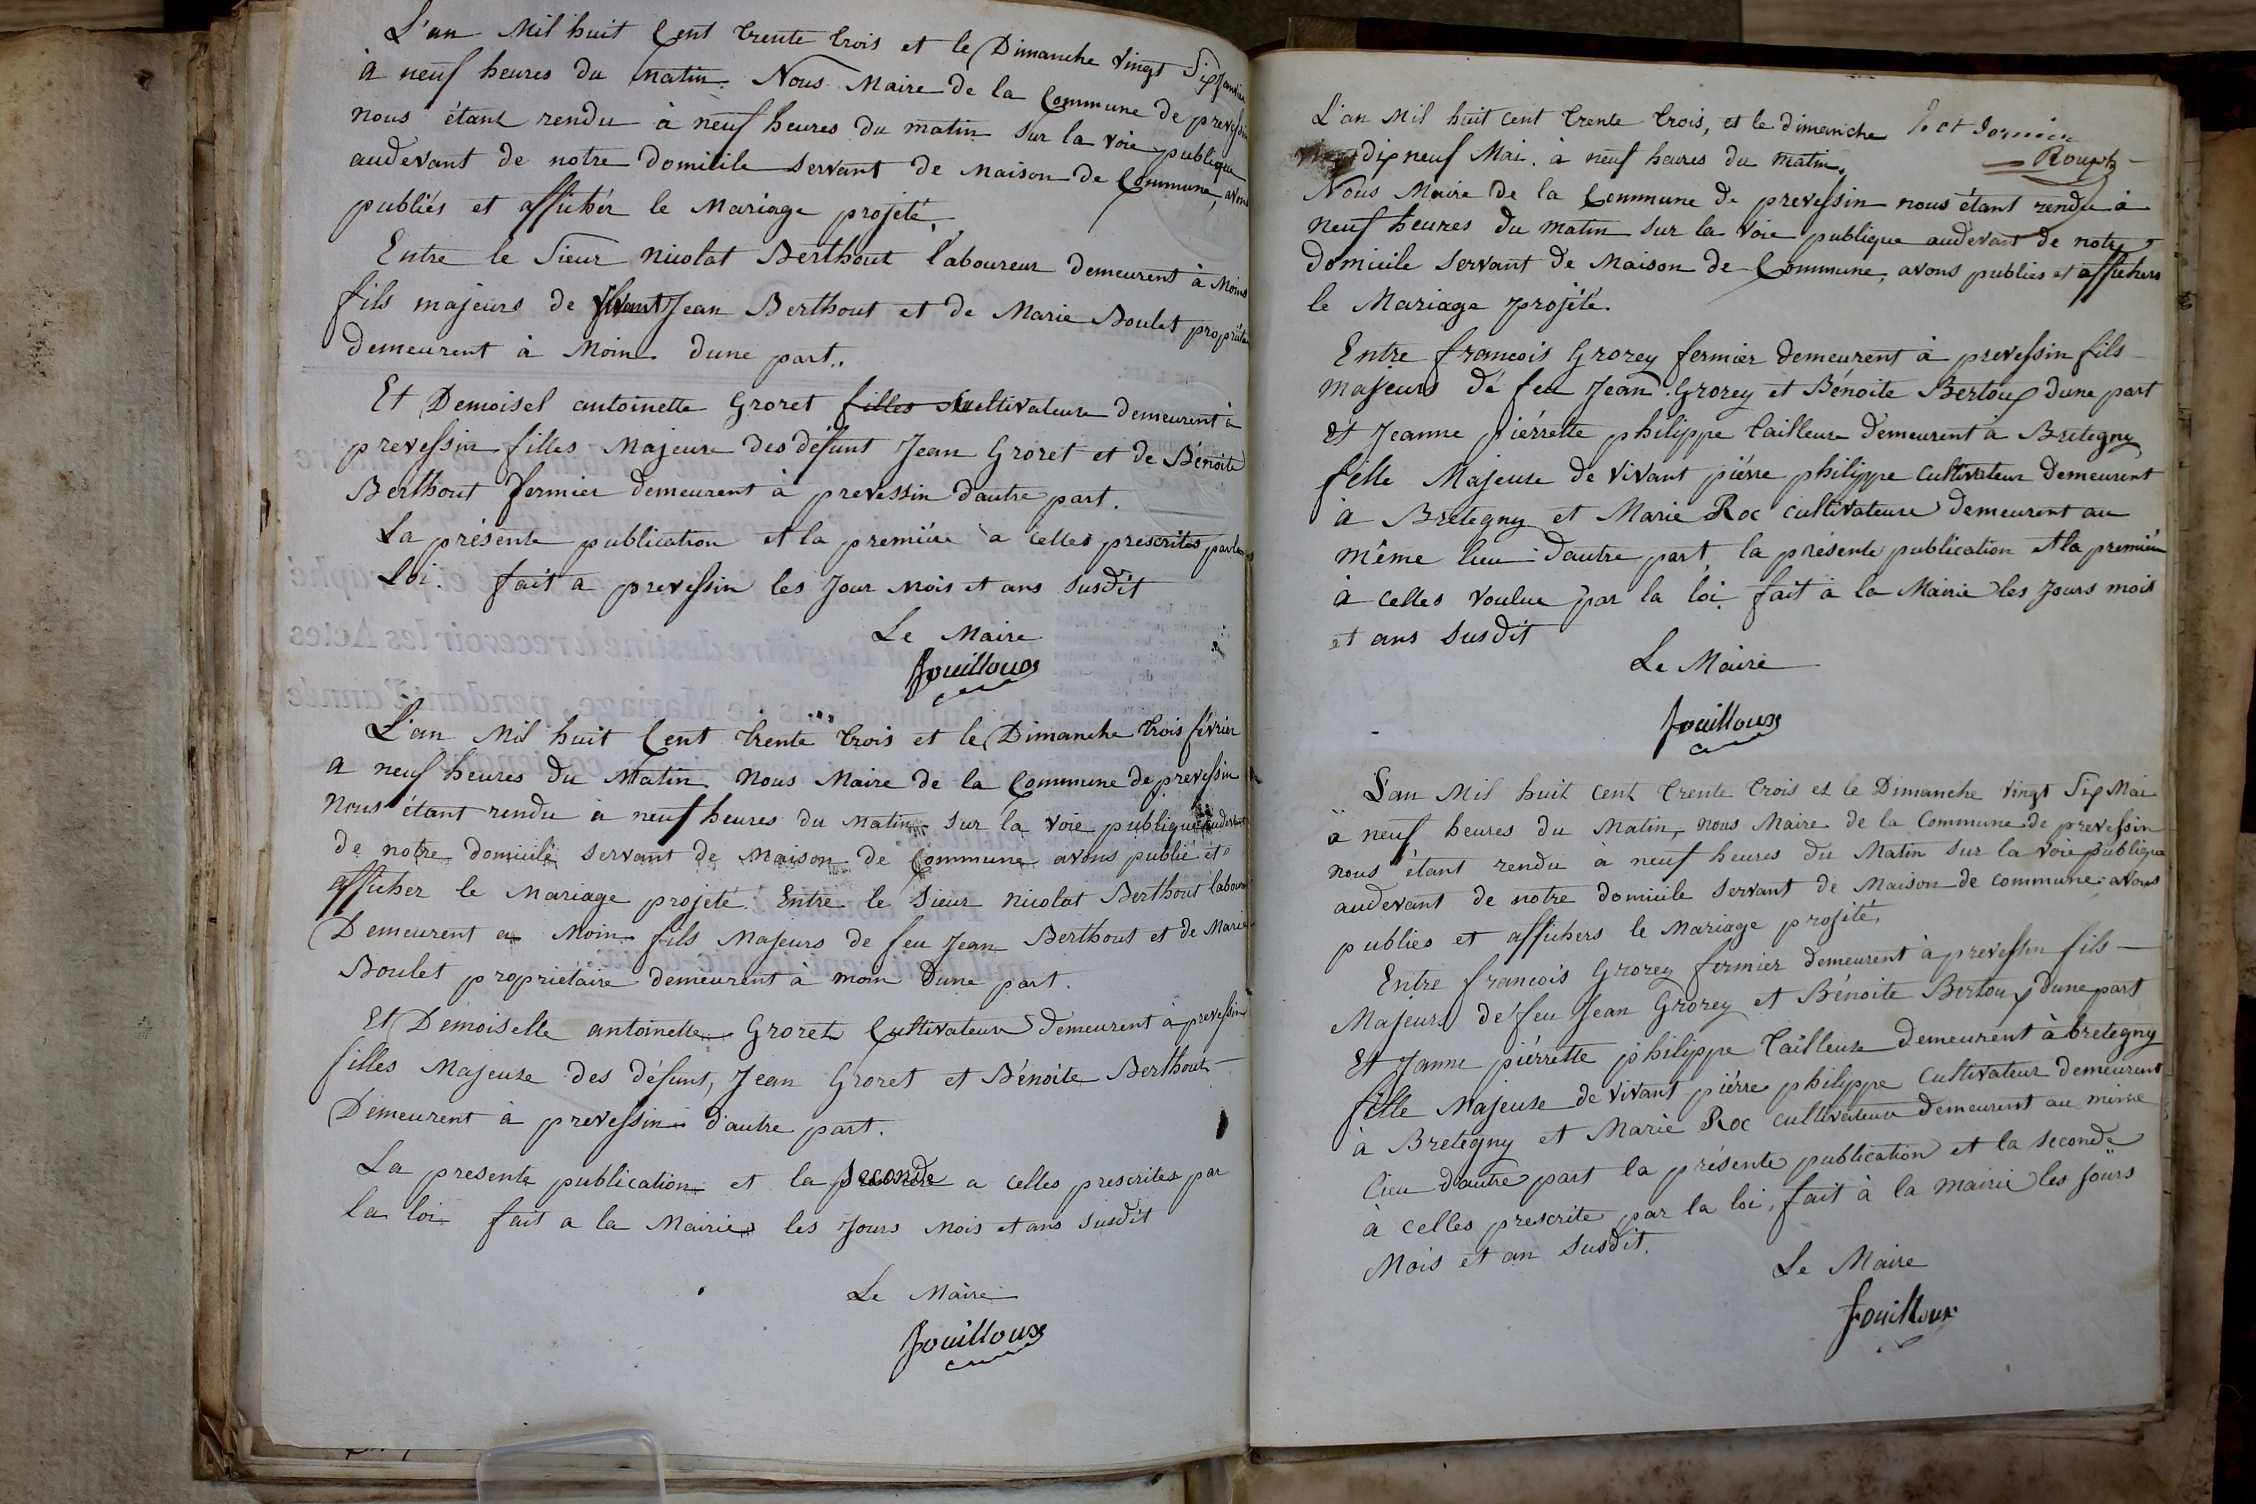 L'an Mil huit Cent trente trois et le Dimanche vingt Six Janvier
à neuf heures du matin. Nous Maire de la Commune de prevessin
nous étant rendu à neuf heures du matin sur la voie publique
audevant de notre domicile servant de maison de Commune, avons
publiés et affichér le Mariage projeté,
Entre le Sieur nicolat Berthout laboureur demeurent à Moins
fils majeurs de Jean Berthout et de Marie Boulet propriétaire
demeurent à Moin dune part.
Et Demoisel antoinette Groret filles Cultivateure demeurent à
prevessin filles Majeure des défunt Jean Groret et de Bénoite
Berthout fermier demeurent à prevessin dautre part.
La présente publication et la premiére a celles prescrites par la
Loi. fait a prevessin les Jour mois et ans susdit
Le Maire
Jouilloux
L'an Mil huit Cent trente trois et le Dimanche trois février
a neuf heures du Matin nous Maire de la Commune de prevessin
Nous étant rendu à neuf heures du matin sur la voie publique audevant
de notre domicile servant de maison de Commune avons publié et
afficher le Mariage projeté. Entre le Sieur nicolat Berthout laboureur
Demeurent a Moin fils Majeurs de feu Jean Berthout et de Marie
Boulet propriétaire demeurent à moin dune part.
Et Demoiselle antoinette Groret Cultivateur demeurent à prevessin
filles Majeure des défunt, Jean Groret et Bénoite Berthout
Demeurent à prevessin d'autre part.
La presente publication et la seconde a celles prescrites par
la loi fait a la Mairie les Jours Mois et ans susdit
Le Maire
Jouilloux
L'an Mil huit cent trente trois, et le dimanche
dix neuf Mai. à neuf heures du matin.
Nous Maire de la Commune de prevessin nous étant rendu à
neuf heures du matin sur la voie publique audevant de notre
domicile servant de Maison de Commune, avons publiés et affichers
le Mariage projété.
Entre francois Grorey fermier demeurent à prevessin fils
majeurs dé feu Jean Grorey et Bénoite Bertoux dune part
et Jeanne piérrette philippe tailleure demeurent à Bretegny
fille Majeure de vivant piérre philippe Cultivateur demeurent
à Bretegny et Marie Roc cultivateure demeurent au
même lieu dautre part, la présente publication et la premiére
à celles voulue par la loi. fait à la Mairie les Jours mois
et ans susdit
Le Maire
Jouilloux
L'an Mil huit cent trente trois et le Dimanche vingt Six Mai
à neuf heures du Matin, nous Maire de la Commune de prevessin
nous étant rendu à neuf heures du Matin sur la voie publique
audevant de notre domicile servant de Maison de commune avons
publiés et affichers le Mariage projété,
Entre francois Grorey fermier demeurent à prevessin fils
Majeurs dé feu Jean Grorey et Bénoite Bertoux dune part
Et Janne piérrette philippe tailleuse demeurent à bretegny
fille Majeure de vivant piérre philippe cultivateur demeurent
à Bretegny et Marie Roc cultivateure demeurent au même
lieu dautre part la présente publication et la seconde
à celles prescrite par la loi, fait à la mairie les jours
Mois et an susdit.
Le Maire
Jouilloux